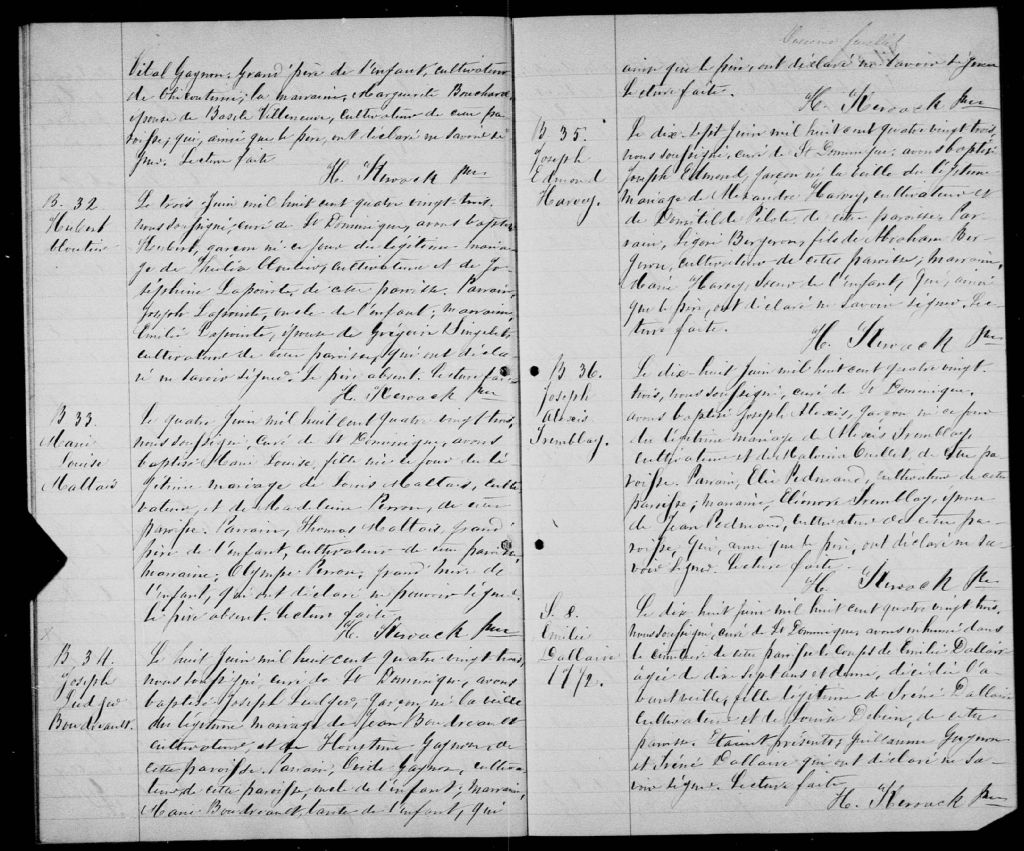 Vital Gagnon, Grand père de l'enfant, cultivateur
de Chicoutimi; la marraine, Marguerite Bouchard,
épouse de Basile Villeneuve, cultivateur de cette pa-
roisse; qui, ainsi que le père, ont déclaré ne savoir si-
gner. Lecture faite
H. Kerouack Ptre
B. 32
Hubert
Cloutier
Le trois Juin mil huit cent quatre vingt-trois,
nous soussigné, curé de St Dominique, avons baptisé
Hubert, garçon né ce jour du légitime maria-
ge de Cloutier, cultivateur et de Jo-
séphine Lapointe, de cette paroisse. Parrain,
Joseph Lapointe, oncle de l'enfant; marraine,
Emilie Lapointe, épouse de Grégoire
cultivateur de cette paroisse, qui ont décla-
ré ne savoir signer. Le père absent. Lecture faite
H. Kerouack Ptre
B 33.
Marie
Louise
Maltais
Le quatre Juin mil huit cent quatre vingt trois,
nous soussigné, curé de St Dominique, avons
baptisé Marie Louise, fille née ce jour du lé-
gitime mariage de Louis Maltais, culti-
vateur, et de Madeleine Perron, de cette
paroisse. Parrain, Thomas Maltais, grand
père de l'enfant, cultivateur de cette paroisse,
marraine, Olympe Perron, grand'mère de
l'enfant, qui ont déclaré ne pouvoir signer.
le père absent. Lecture faite
H. Kerouack Ptre
B. 34.
Joseph
Ludger
Boudreault.
Le huit Juin mil huit cent quatre vingt trois,
nous soussigné curé de St Dominique, avons
baptisé Joseph Ludger, garçon, né la veille
du légitime mariage de Jean Boudreault
cultivateur, et de Gagnon, de
cette paroisse. Parrain, Ovide Gagnon, cultiva-
teur de cette paroisse, oncle de l'enfant; marraine,
Marie Boudreault, tante de l'enfant, qui
feuillet
ainsi que le père, ont déclaré ne savoir signer
Lecture faite.
H. Kerouack Ptre
B 35.
Joseph
Edmond
Harvey.
Le dix-sept Juin mil huit cent quatre vingt trois,
nous soussigné, curé de St Dominique, avons baptisé
Joseph Edmond, garçon né la veille du légitime
mariage de Alexandre Harvey, cultivateur et
de Domitilde Pilote, de cette paroisse. Par-
rain, Ligori Bergeron, fils de Abraham Ber-
geron, cultivateur de cette paroisse; marraine,
Marie Harvey, soeur de l'enfant, qui, ainsi
que le père, ont déclaré ne savoir signer. Lec-
ture faite.
H. Kerouack Ptre
B 36.
Joseph
Alexis
Tremblay.
Le dix-huit Juin mil huit cent quatre vingt-
trois, nous soussigné, curé de St Dominique,
avons baptisé Joseph Alexis, garçon né ce jour
du légitime mariage de Alexis Tremblay,
cultivateur et de Malvina Ouellet, de cette pa-
roisse. Parrain, Elie Pedneaud, cultivateur de cette
paroisse; marraine, Eléonore Tremblay, épouse
de Jean Pedneaud, cultivateur de cette pa-
roisse, qui, ainsi que le père, ont déclaré ne sa-
voir signer. Lecture faite.
H. Kerouack Ptre
S. 8.
Emilie
Dallaire
17 1/2.
Le dix huit Juin mil huit cent quatre vingt trois,
nous soussigné, curé de St Dominique, avons inhumé dans
le cimetière de cette paroisse le corps de Emilie Dallaire
âgée de dix sept ans et demie, décédée l'a-
vant veille, fille légitime de Iréné Dallaire
cultivateur et de Louise Debien, de cette
paroisse. Etaient présents; Guillaume Gagnon
et Iréné Dallaire qui ont déclaré ne sa-
voir signer. Lecture faite
H. Kerouack Ptre